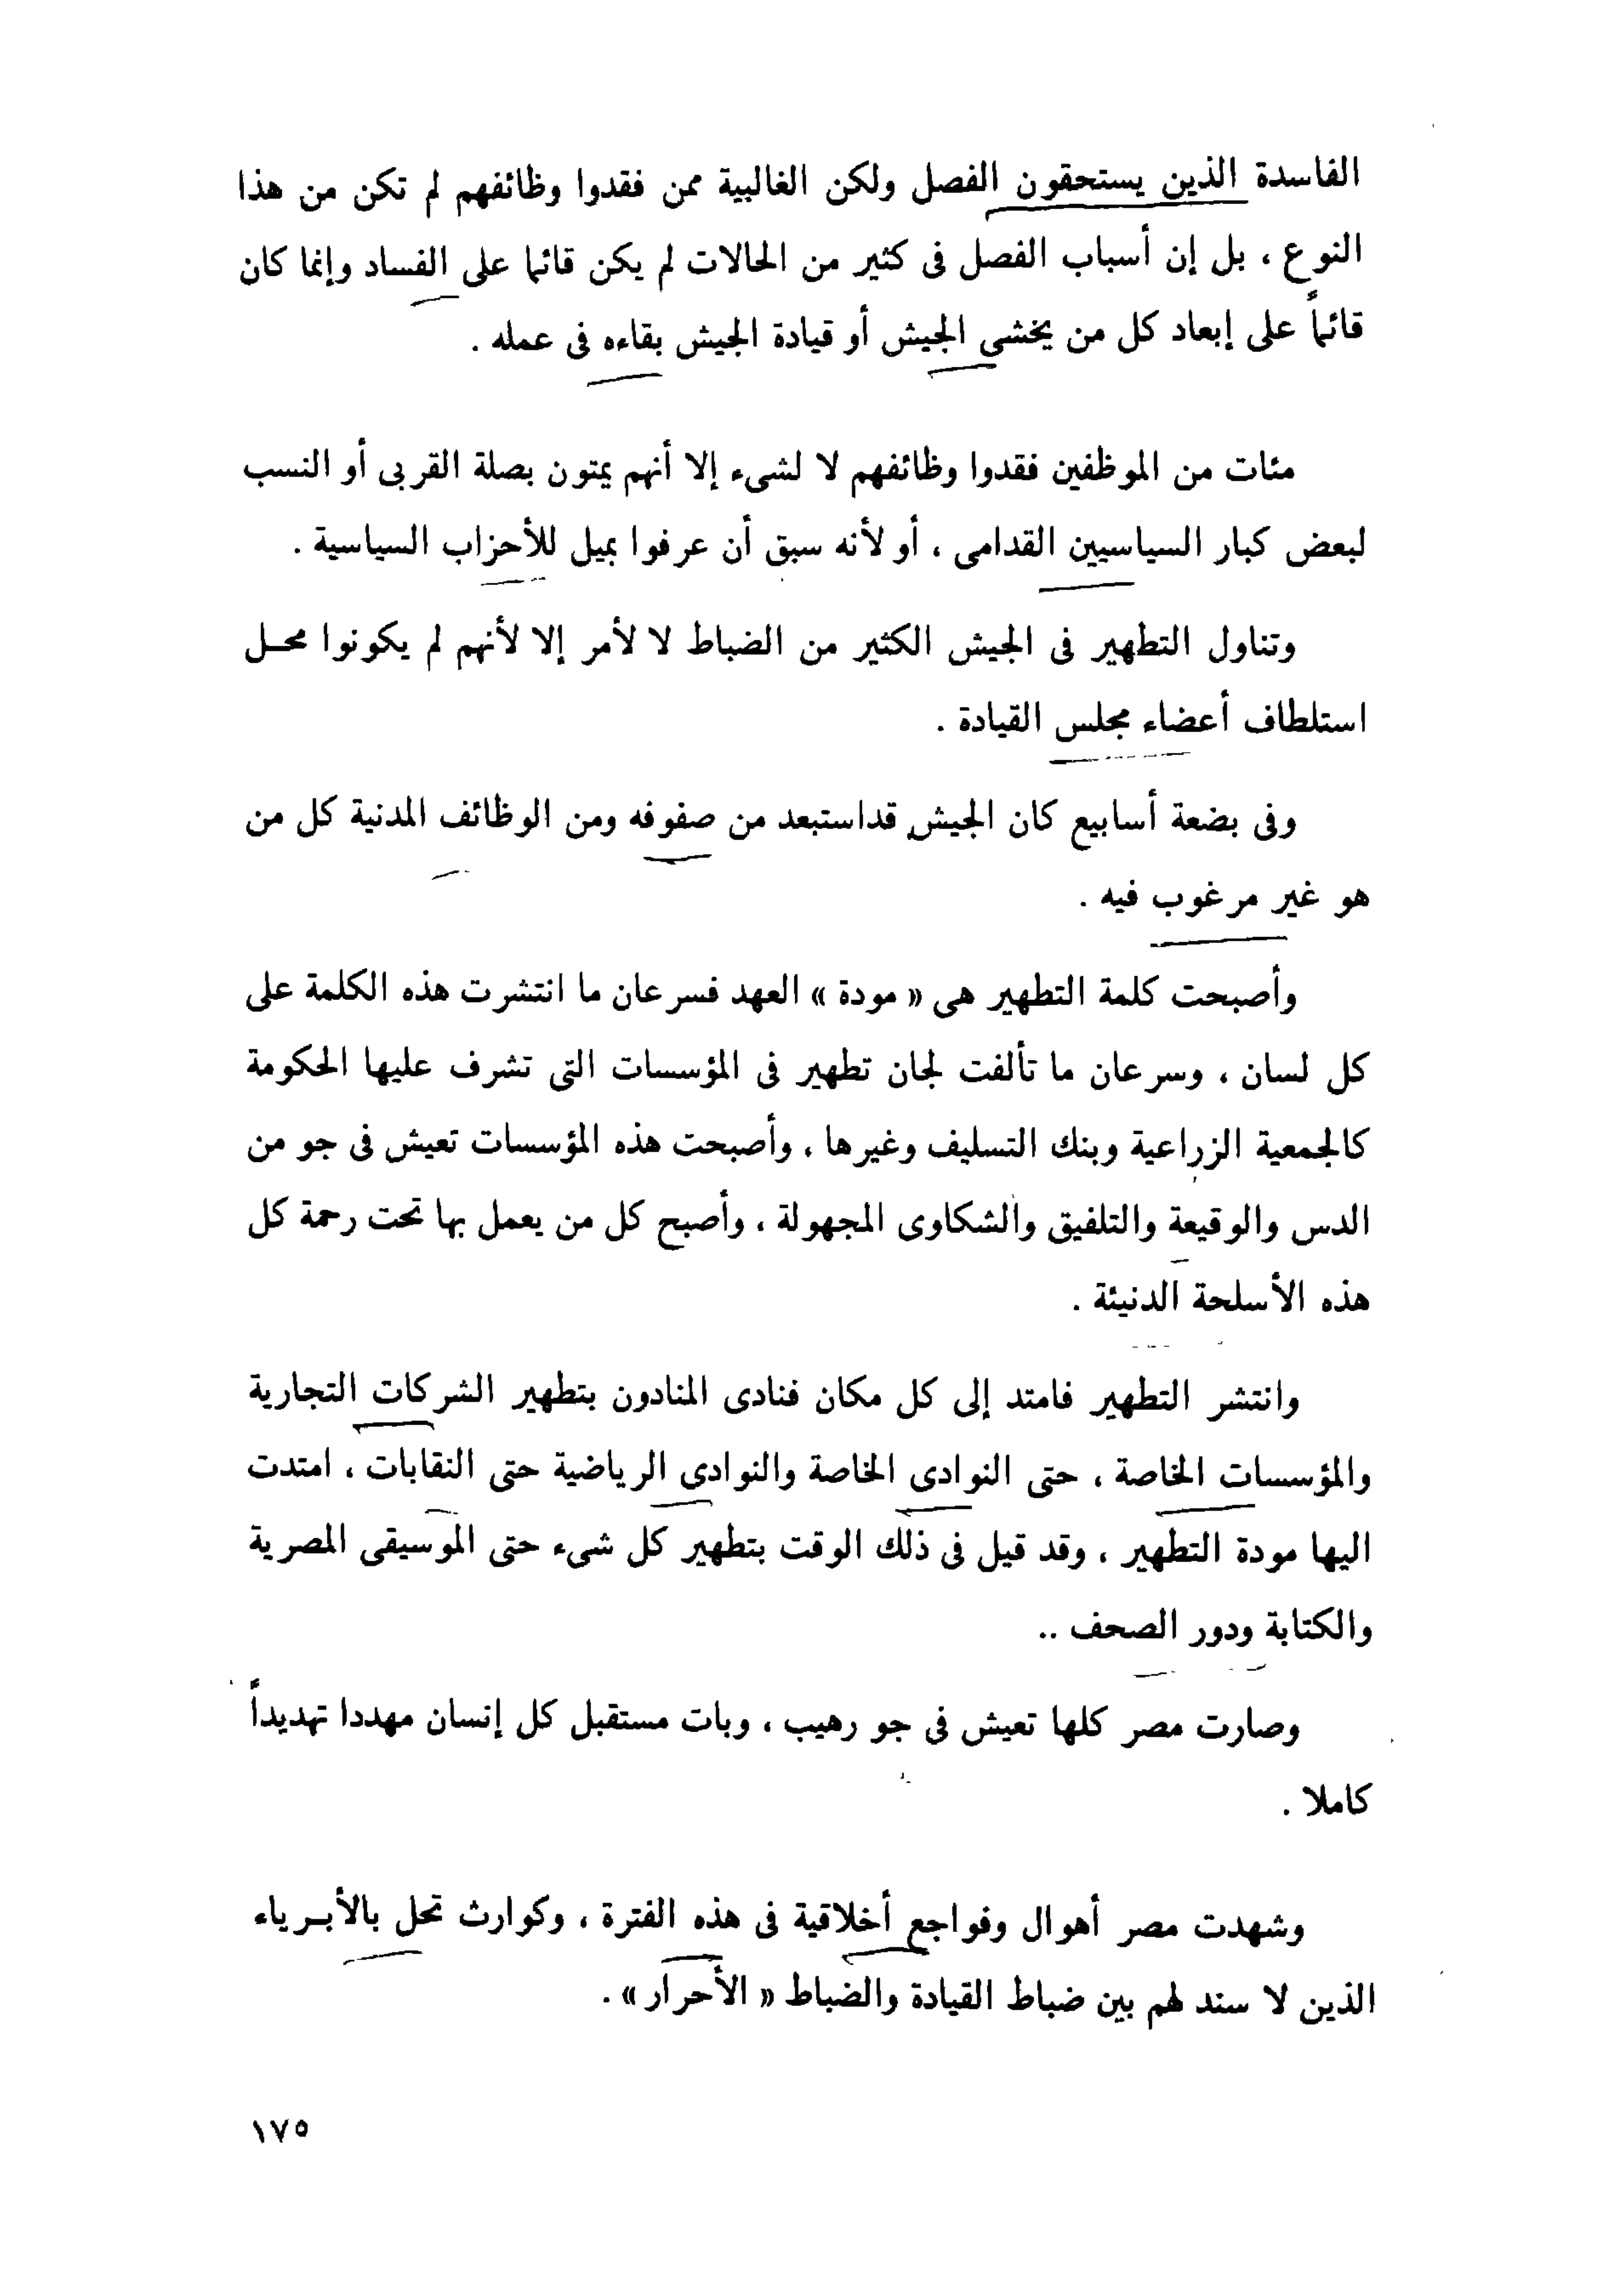 الفاسدة الذين يستحقون الفصل ولكن الغالبية ممن فقدوا وظائفهم لم تكن من هذا
النوع ، بل إن أسباب الفصل فى كثير من الحالات لم يكن قائما على الفساد وإنما كان
قائماً على إبعاد كل من يخشى الجيش أو قيادة الجيش بقاءه فى عمله .
مئات من الموظفين فقدوا وظائفهم لا لشىء إلا أنهم يمتون بصلة القربى أو النسب
لبعض كبار السياسيين القدامى ، أو لأنه سبق أن عرفوا بميل للأحزاب السياسية .
وتناول التطهير فى الجيش الكثير من الضباط لا لأمر إلا لأنهم لم يكونوا محل
استلطاف أعضاء مجلس القيادة .
وفى بضعة أسابيع كان الجيش قداستبعد من صفوفه ومن الوظائف المدنية كل من
هو غير مرغوب فيه .
وأصبحت كلمة التطهير هى « مودة » العهد فسرعان ما انتشرت هذه الكلمة على
كل لسان ، وسرعان ما تألفت لجان تطهير فى المؤسسات التى تشرف عليها الحكومة
كالجمعية الزراعية وبنك التسليف وغيرها ، وأصبحت هذه المؤسسات تعيش فى جو من
الدس والوقيعة والتلفيق والشكاوى المجهولة ، وأصبح كل من يعمل بها تحت رحمة كل
هذه الأسلحة الدنيئة .
وانتشر التطهير فامتد إلى كل مكان فنادى المنادون بتطهير الشركات التجارية
والمؤسسات الخاصة ، حتى النوادى الخاصة والنوادى الرياضية حتى النقابات ، امتدت
اليها مودة التطهير ، وقد قيل فى ذلك الوقت بتطهير كل شىء حتى الموسيقى المصرية
والكتابة ودور الصحف ..
وصارت مصر كلها تعيش فى جو رهيب ، وبات مستقبل كل إنسان مهددا تهديداً
كاملا .
وشهدت مصر أهوال وفواجع أخلاقية فى هذه الفترة ، وكوارث تحل بالأبرياء
الذين لا سند لهم بين ضباط القيادة والضباط « الأحرار » .
١٧٥